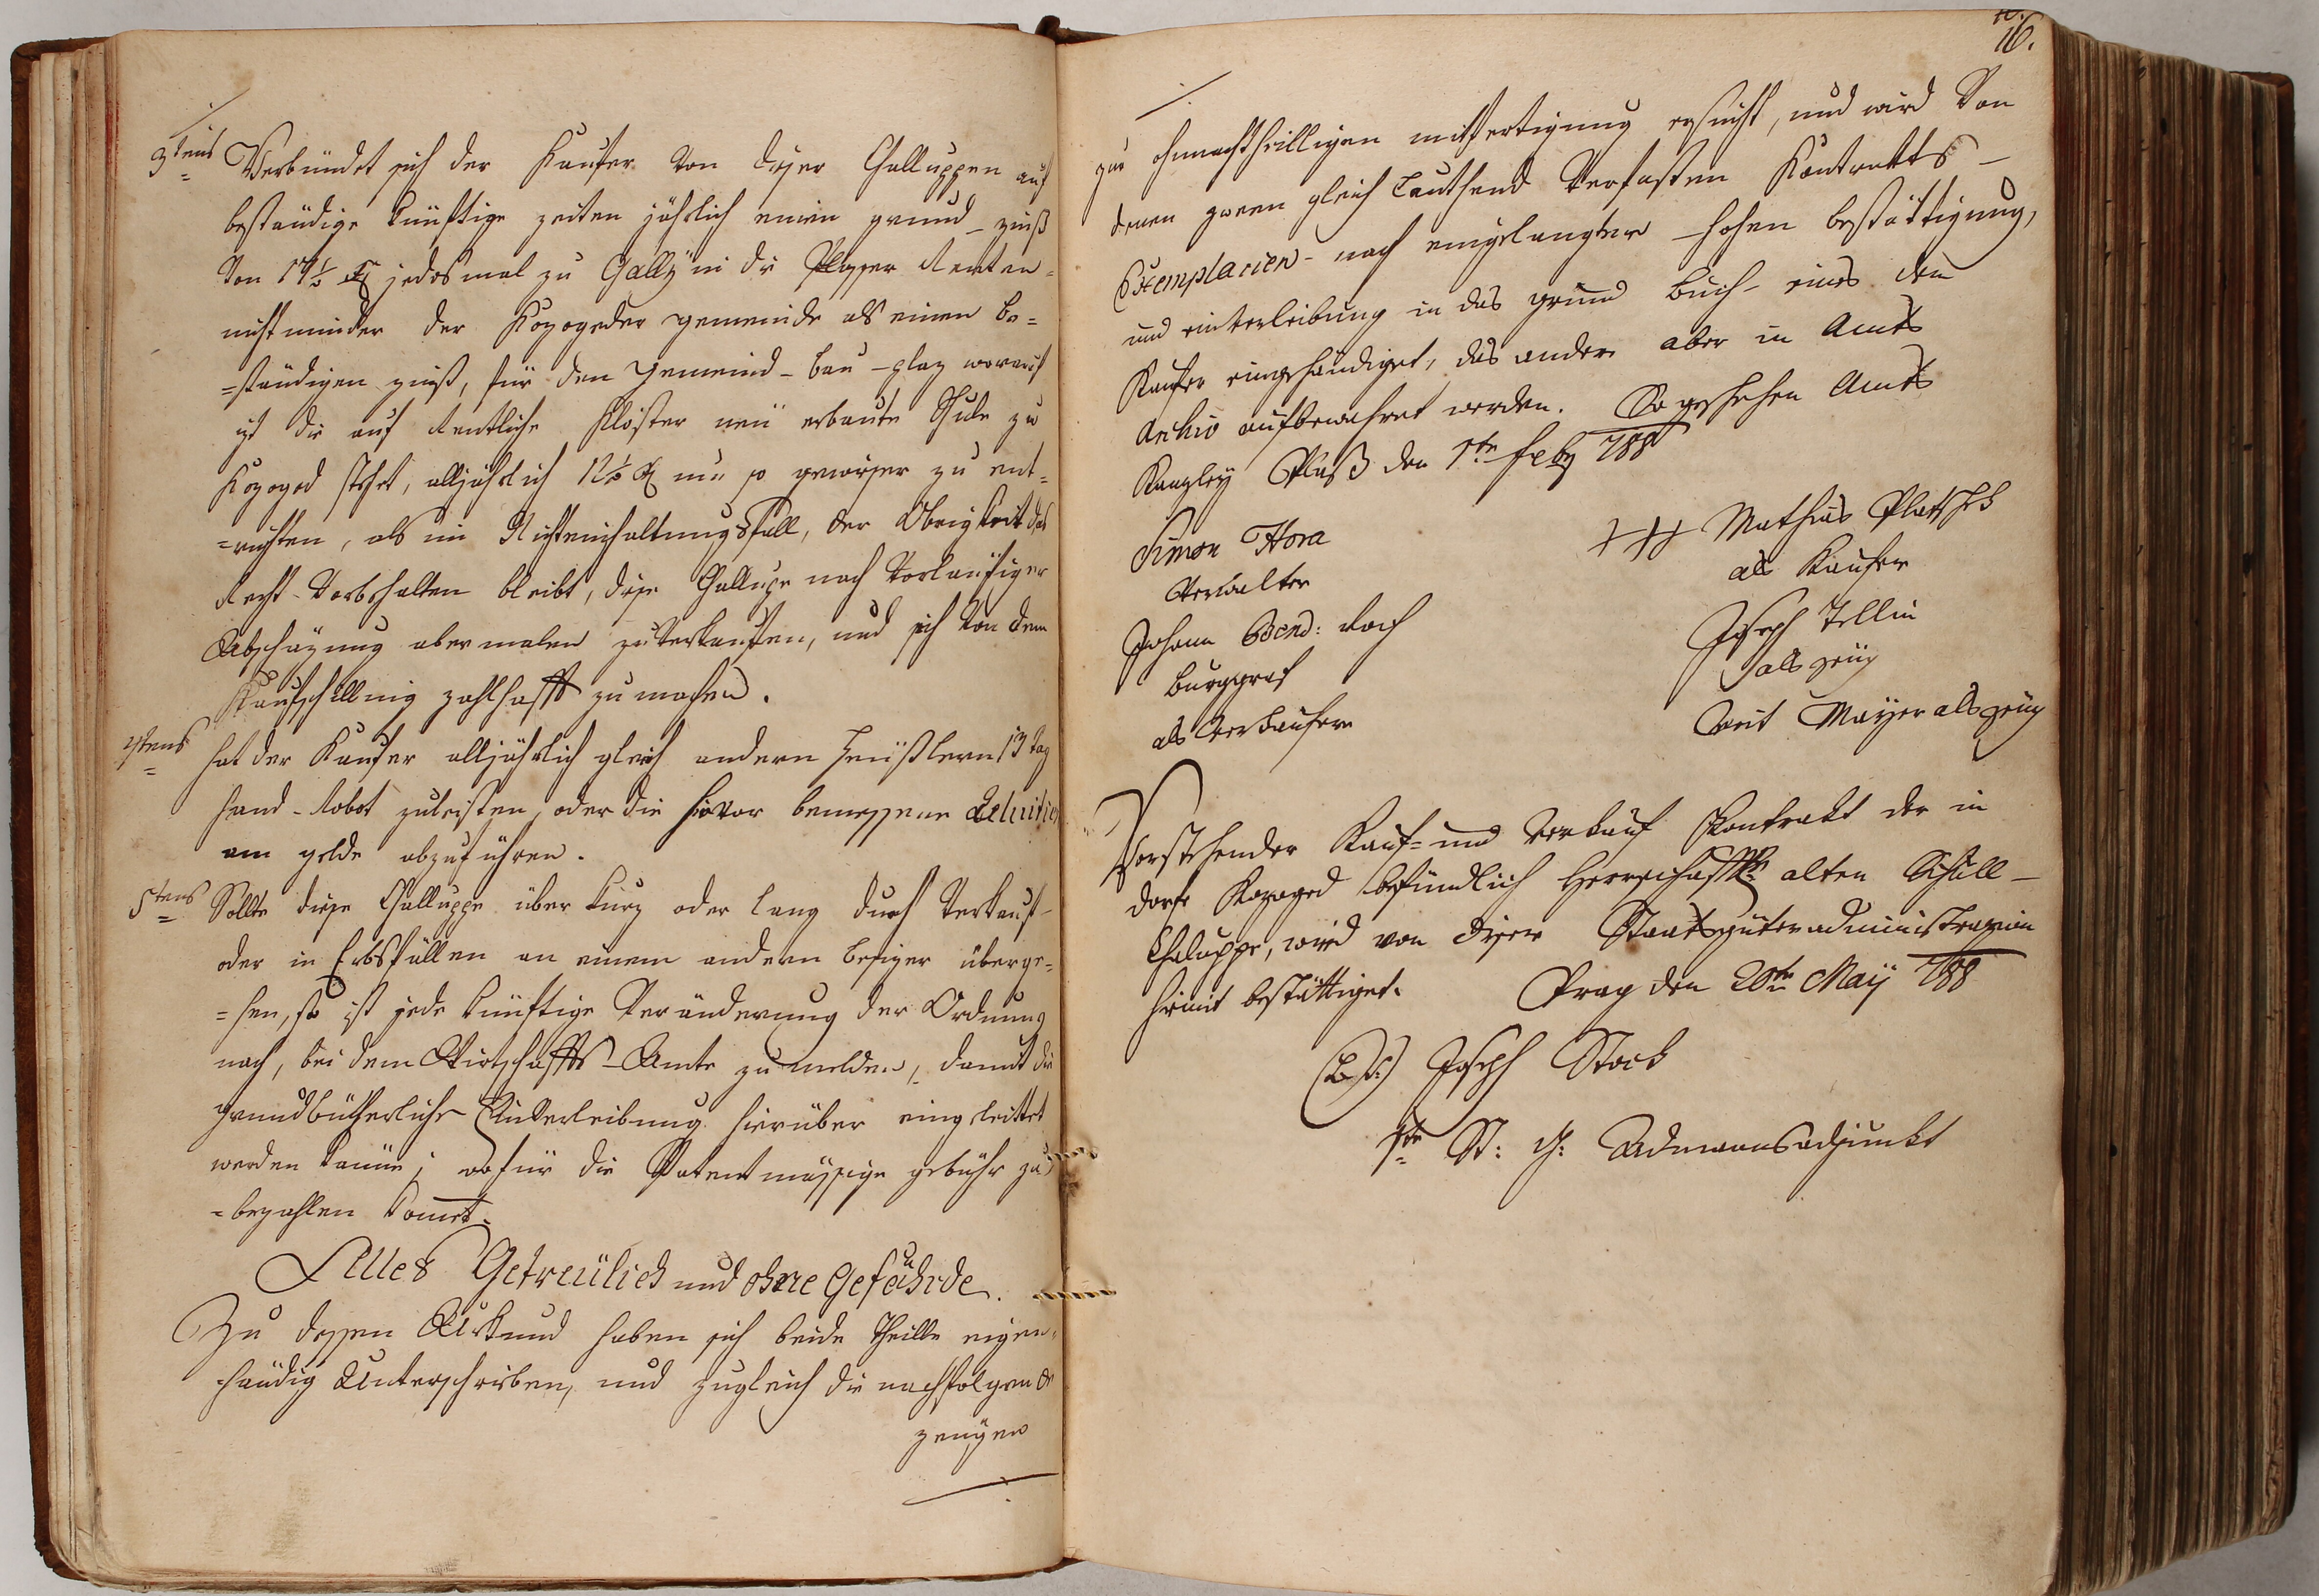 ./.
3tens Verbündet sich der Kaufer von dieser Challuppen auf
beständige künftige zeiten jährlich einen grund-zinß
von 17½ x jedesmal zu Gally in die Plasser Renten
nicht minder der Kozogeder gemeinde als einen be=
=ständigen zinß, für den Gemeind-bau-plaz worauf
ist die auf Rentliche Köster neü erbaute Schule zu
Kozoged stehet, alljährlich 12½ x um so gewisser zu ent=
=richten, als im Nichteinhaltungsfall, der Obrigkeit das
Recht vorbehalten bleibt, diese Challupe nach vorläufiger
Abschäzung abermalen zuverkaufen, und sich von dem
Kaufschilling zahlhafft zu machen.
4tens hat der Kaufer alljährlich gleich andern Heüßlern 13 tag
Hand-Robot zuleisten, oder die hievor bemessene Reluition
am gelde abzuführen.
5tens Sollte diese Challuppe über kurz oder lang durch Verkauf-
oder in Erbsfällen an einem andern besizer überge=
=hen, so ist jede künftige Veränderung der Ordnung
nach, bei dem Wirtschaffts-Amte zu melden, damit die
grundbücherliche Einverleibung hierüber eingeleittet
werden könne; wofür die Patentmässige gebühr zu
=bezahlen kommt.
Alles Getreülich und ohne Gefährde.
Zu dessen Urkund haben sich beide Theille eigen=
händig Unterschrieben, und zugleich die nachfolgende
zeügen
./.
16.
./.
zur ohnnachtheilligen mitfertigung ersucht, und wird von
denen zween gleich lauthend verfasten Kontrakts-
Exemplarien- nach eingelangter -hohen bestättigung,
und einverleibung in das grund buch- eines dem
Kaufer eingehändiget, das andere aber in Amts
Archiv aufbewahret werden. So geschehen Amts
Kanzley Plaß den 1te feby 788
Simon Hora
Verwalter
Johann Bend: Koch
Burggraf
als Verkaufere
+++ Mathias
als Kaufer
Joseph Tellin
als zeüg
Veit Mayer als zeüg
Vorstehender Kauf= und Verkauf Kontrakt der in
dorfe Kozoged befindlich Herrschaftl: alten Schull-
Chaluppe, wird von dieser Staatsgüteradministrazion
hiemit bestättiget. Prag den 20te Maÿ 788
(L:S:) Joseph Stock
1te St: G: Admaonsadjunkt